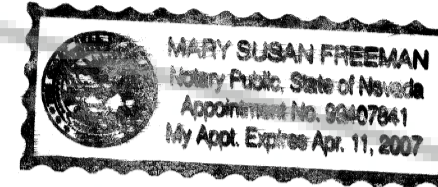 MARY SUSAN FREEMAN
Notary Public, State of Nevada
Appointment No. 99407841
My Appt. Expires Apr. 11, 2007